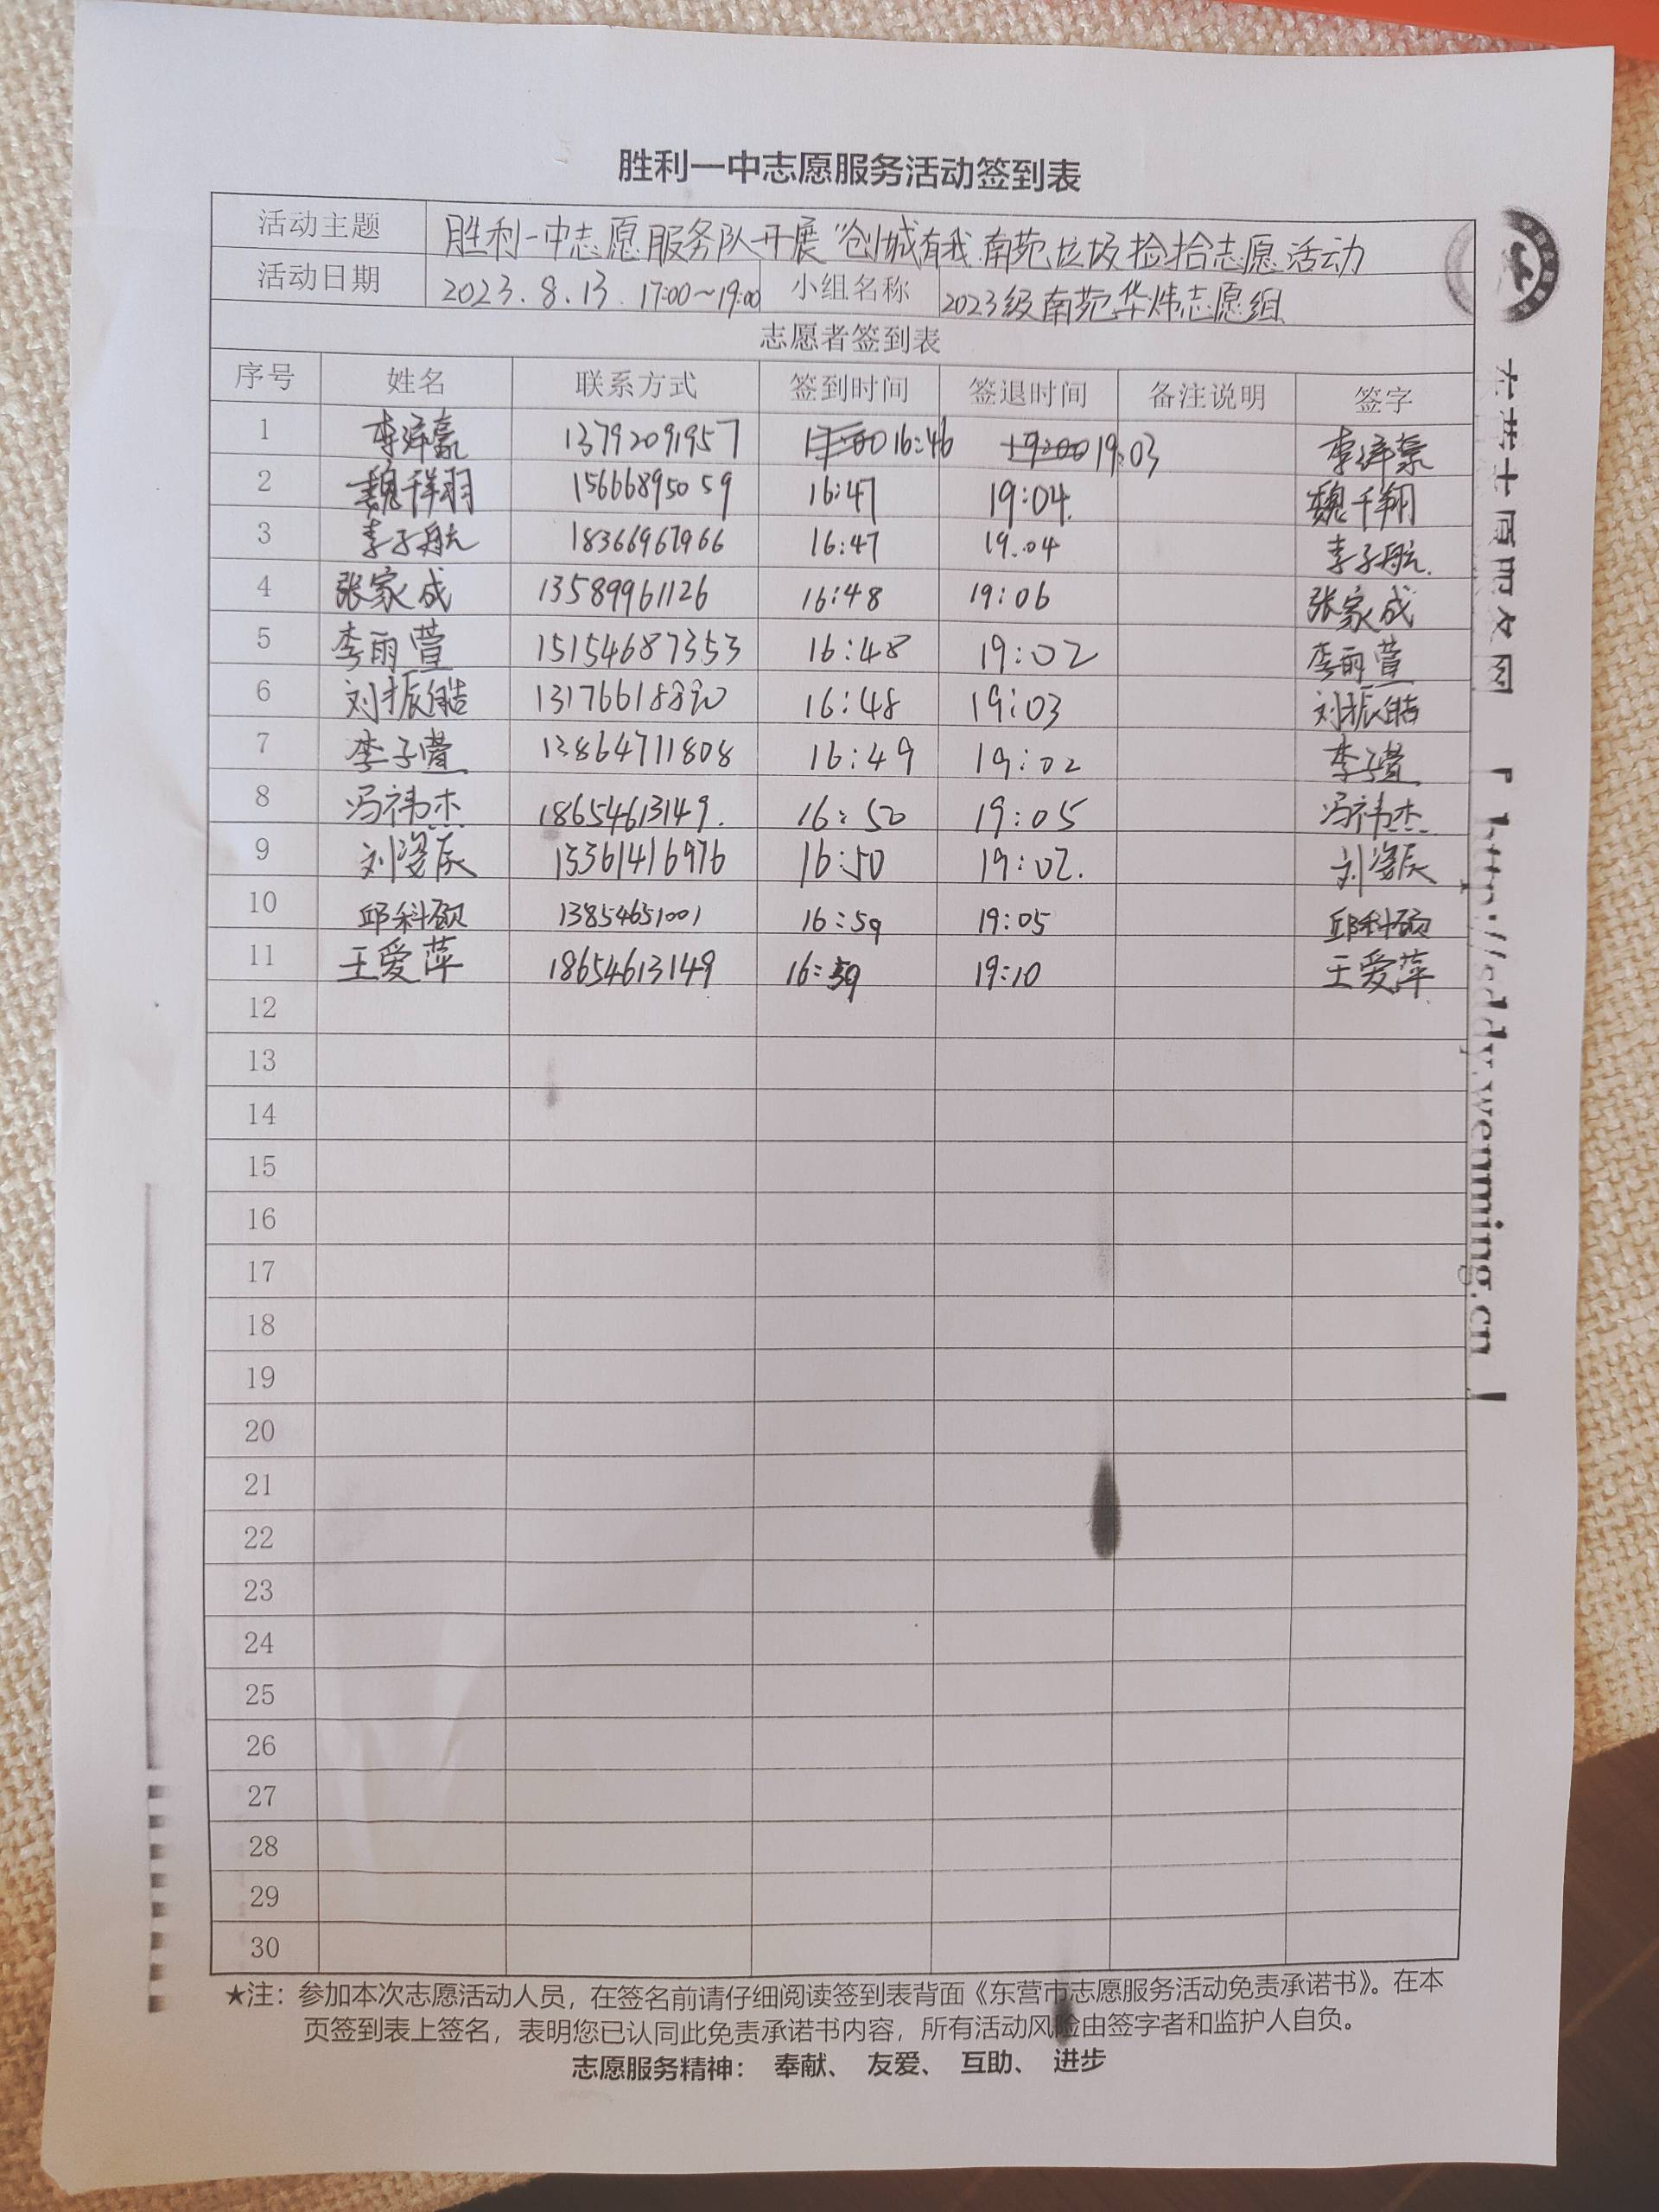 胜利一中志愿服务活动签到表
活动主题 胜利一中志愿服务队开展“创城有我 南苑垃圾捡拾志愿活动
活动日期 2023.8.13 17:00~19:00 小组名称 2023级南苑华炜志愿组
志愿者签到表
序号 姓名 联系方式 签到时间 签退时间 备注说明 签字
1 李泽豪 13792091957 16:46 19:03 李泽豪
2 魏千翔 15666895059 16:47 19:04. 魏千翔
3 李子航 18366967966 16:47 19.04 李子航.
4 张家成 13589961126 16:48 19:06 张家成
5 李雨萱 15154687353 16:48 19:02 李雨萱
6 刘振皓 16:48 19:03 刘振皓
7 李子萱 13864711808 16:49 19:02 李子萱
8 冯祎杰 18654613149. 16:50 19:05 冯祎杰
9 15361416976 16:50 19:02.
10 邱科硕 13854651001 16:59 19:05 邱科硕
11 王爱萍 18654613149 16:59 19:10 王爱萍
12
13
14
15
16
17
18
19
20
21
22
23
24
25
26
27
28
29
30
★注：参加本次志愿活动人员，在签名前请仔细阅读签到表背面《东营市志愿服务活动免责承诺书》。在本
页签到表上签名，表明您已认同此免责承诺书内容，所有活动风险由签字者和监护人自负。
志愿服务精神： 奉献、 友爱、 互助、 进步